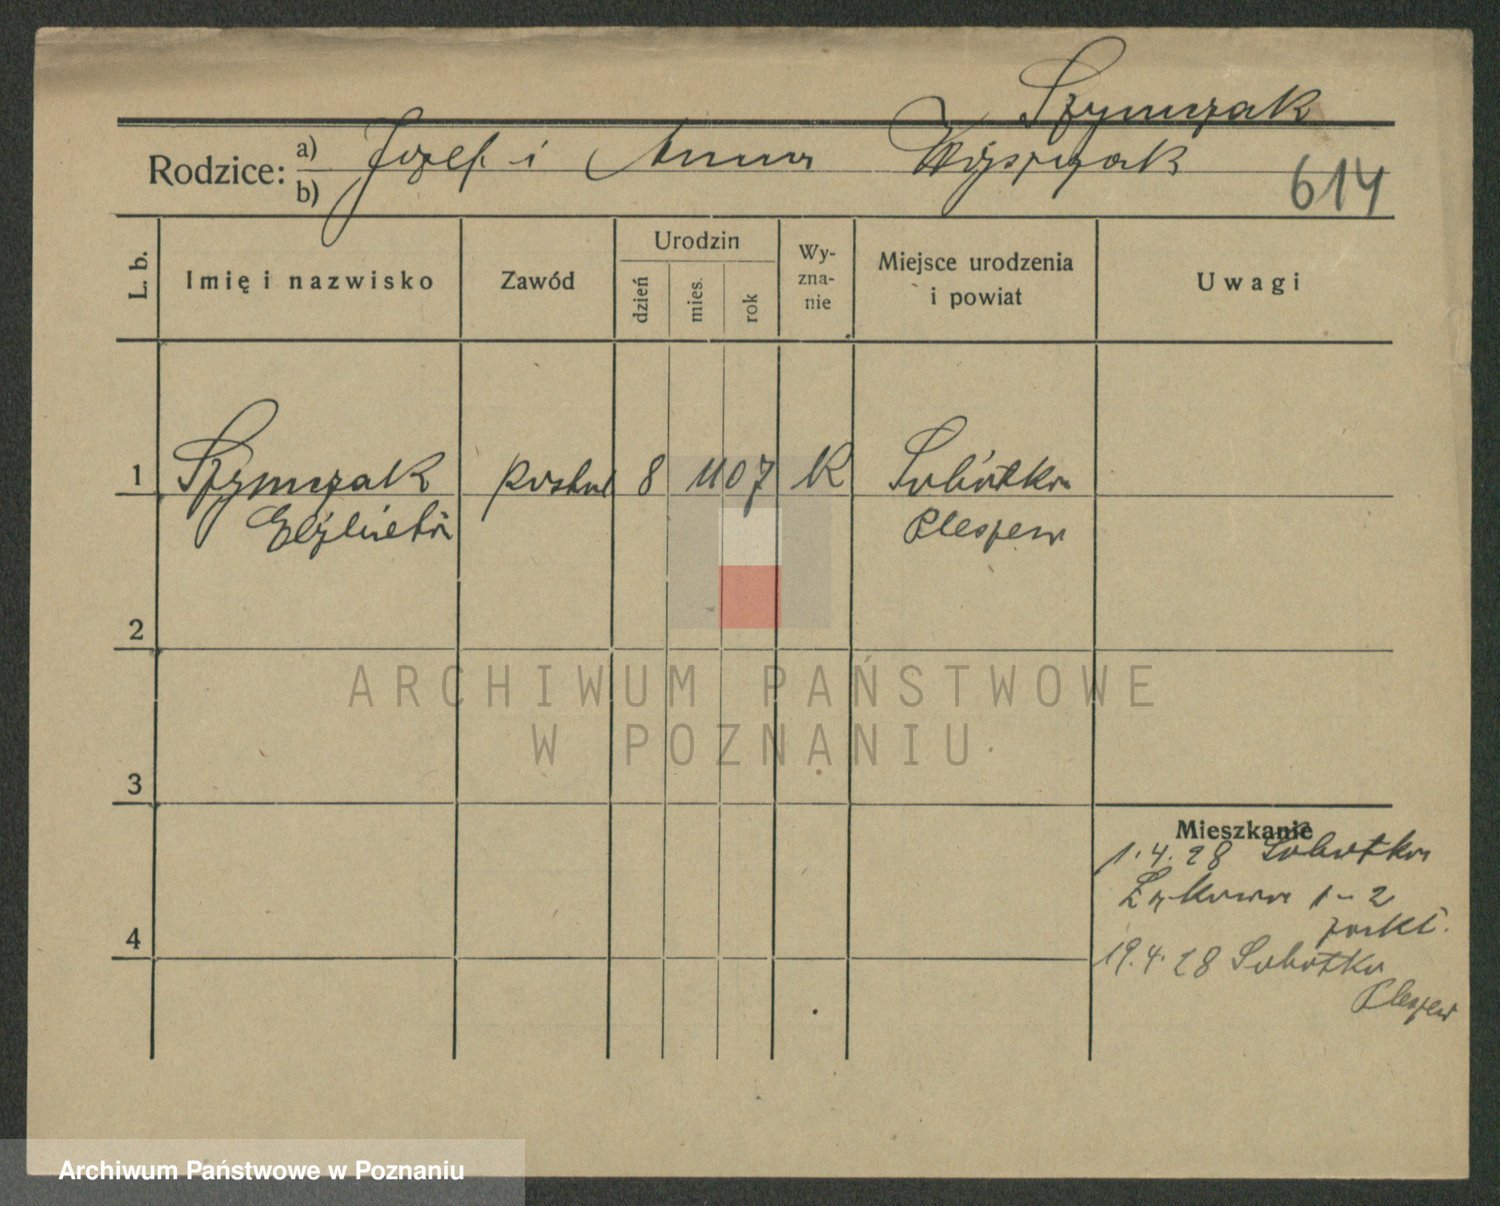 Szymczak
Rodzice: a) Józef i Anna Wyszczak
b)
614
L. b.
Imię i nazwisko
Zawód
Urodzin
dzień
mies.
rok
Wy-
zna-
nie
Miejsce urodzenia
i powiat
Uwagi
1 Szymczak 8 11 07 K Sobótka
Elżbieta Pleszew
2
3
4
Mieszkanie
1.4.28 Sobótka
1-2
19.4.28 Sobótka
Pleszew
ARCHIWUM PAŃSTWOWE
W POZNANIU
Archiwum Państwowe w Poznaniu